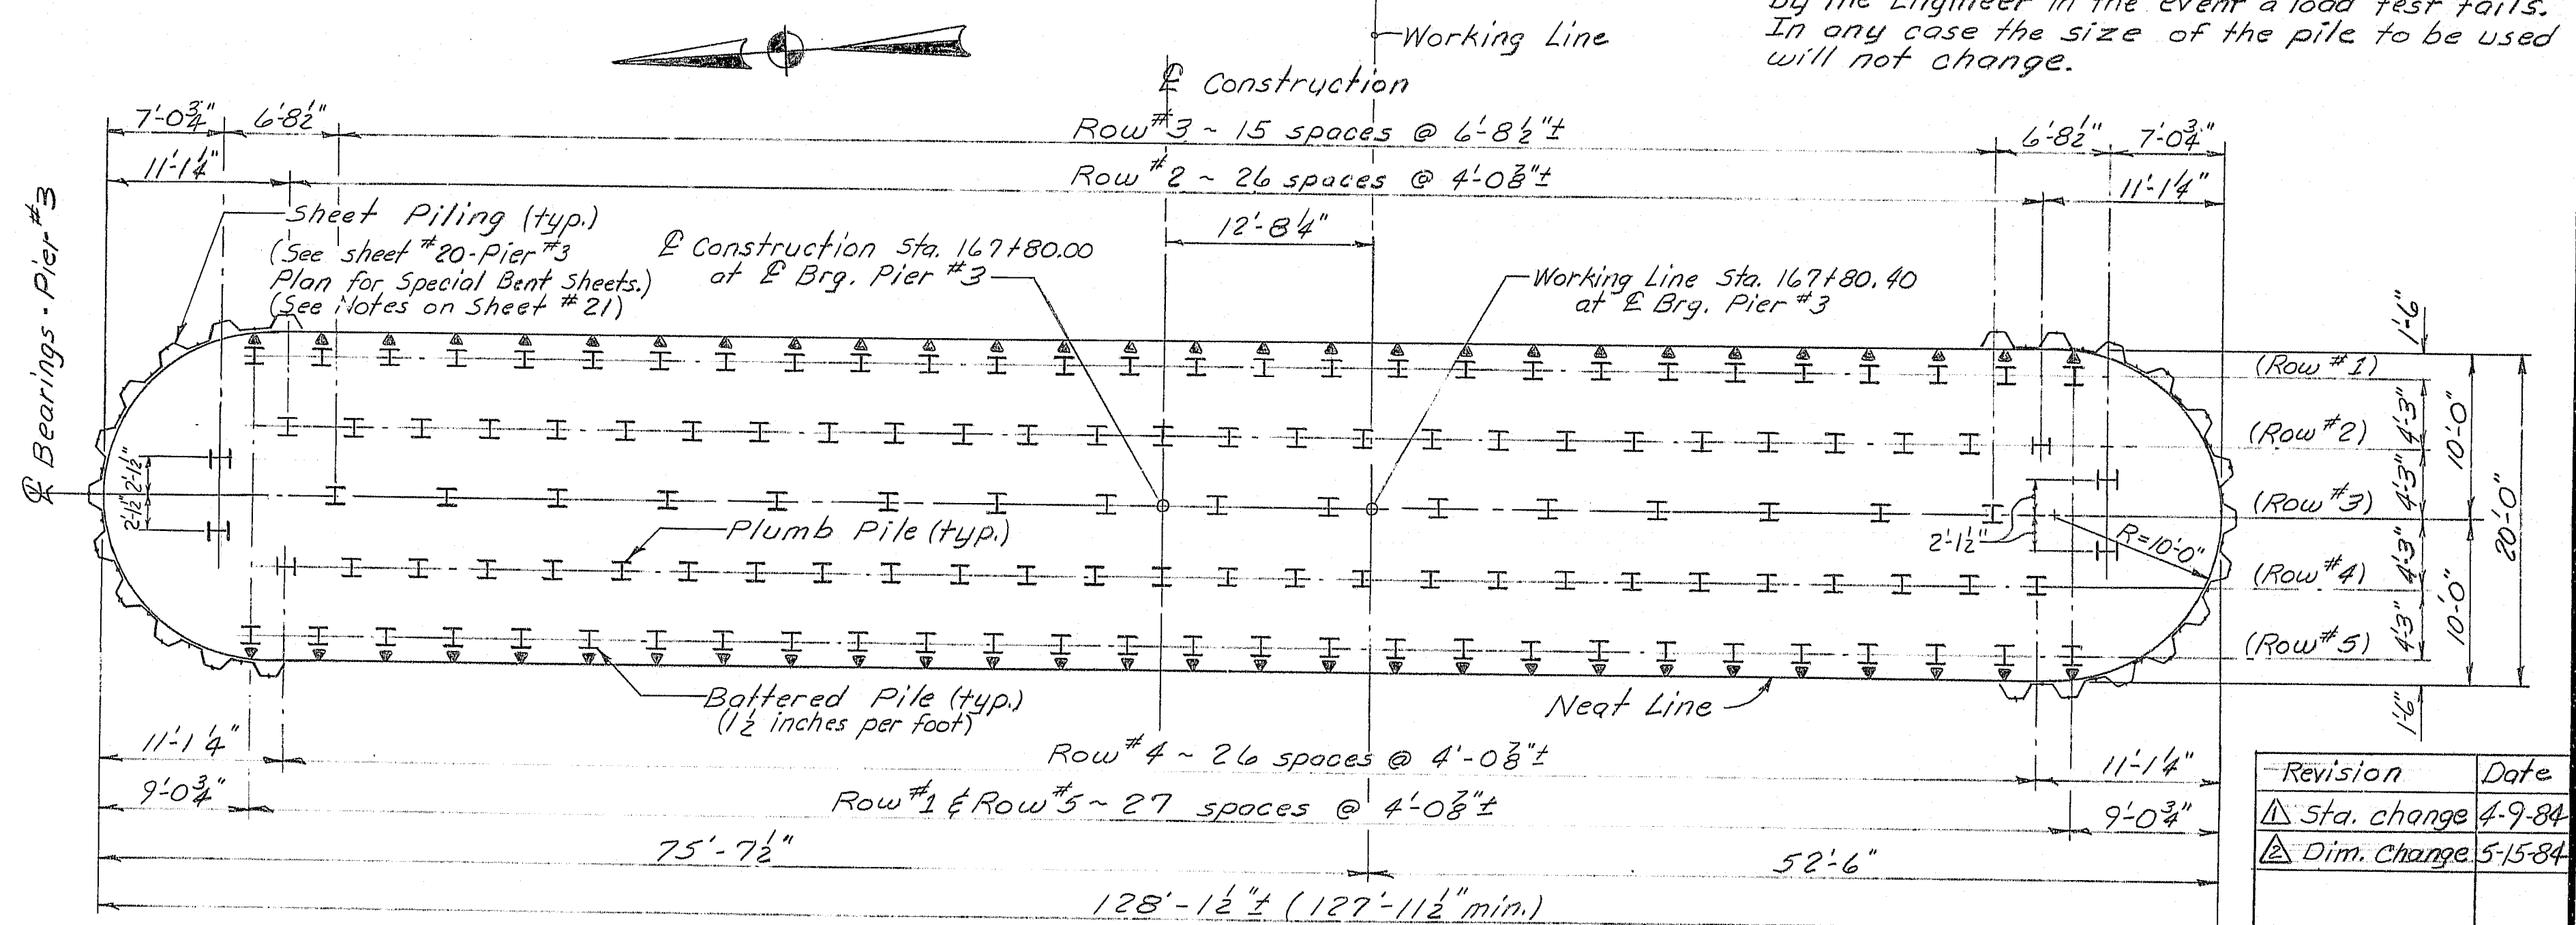 By the Engineer in the event a load test fails.
In any case the size of the pile to be used
will not change.
Working Line
℄ Construction
7'-0¾" 6'-8½" Row #3 ~ 15 spaces @ 6'-8½"± 6'-8½" 7'-0¾"
11'-1¼" Row #2 ~ 26 spaces @ 4'-0⅞"± 11'-1¼"
12'-8¼"
℄ Bearings - Pier #3
Sheet Piling (typ.)
(See sheet #20-Pier #3
Plan for Special Bent Sheets.)
(See Notes on Sheet #21)
℄ Construction Sta. 167+80.00
at ℄ Brg. Pier #3
Working Line Sta. 167+80.40
at ℄ Brg. Pier #3
1'-6"
(Row #1)
4'-3" 10'-0"
(Row #2)
4'-3"
(Row #3)
20'-0"
4'-3"
(Row #4)
4'-3" 10'-0"
(Row #5)
1'-6"
2'-1½" 2'-1½"
2'-1½"
R=10'-0"
Plumb Pile (typ.)
Battered Pile (typ.)
(1½ inches per foot)
Neat Line
11'-1¼" Row #4 ~ 26 spaces @ 4'-0⅞"± 11'-1¼"
9'-0¾" Row #1 & Row #5 ~ 27 spaces @ 4'-0⅞"± 9'-0¾"
75'-7½" 52'-6"
128'-1½"± (127'-11½" min.)
Revision Date
1 Sta. change 4-9-84
2 Dim. Change 5-15-84